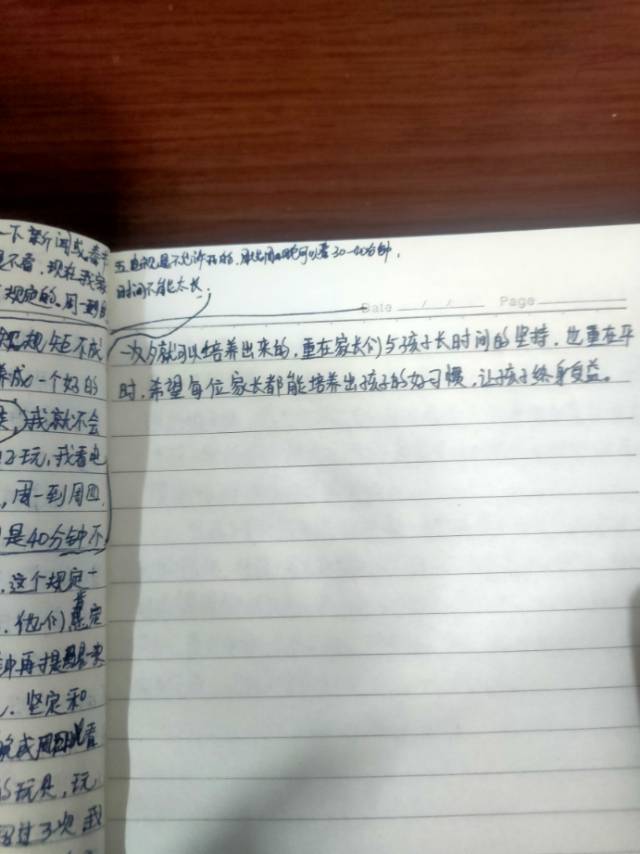 一下新闻或春节
是不看,现在我家
规定的,周一到周
五电视是不允许开的,周晚可以看30-40分钟,
时间不能太长.
Date / / Page
规矩不成
养成一个好的
我就不会
玩,我看电
,周一到周四,
是40分钟不
,这个规定一
.他们
钟再
.坚定和
看
的玩具,玩
超过3次我
一次就可以培养出来的,重在家长们与孩子长时间的坚持,也重在平
时,希望每位家长都能培养出孩子的好习惯,让孩子终身受益。